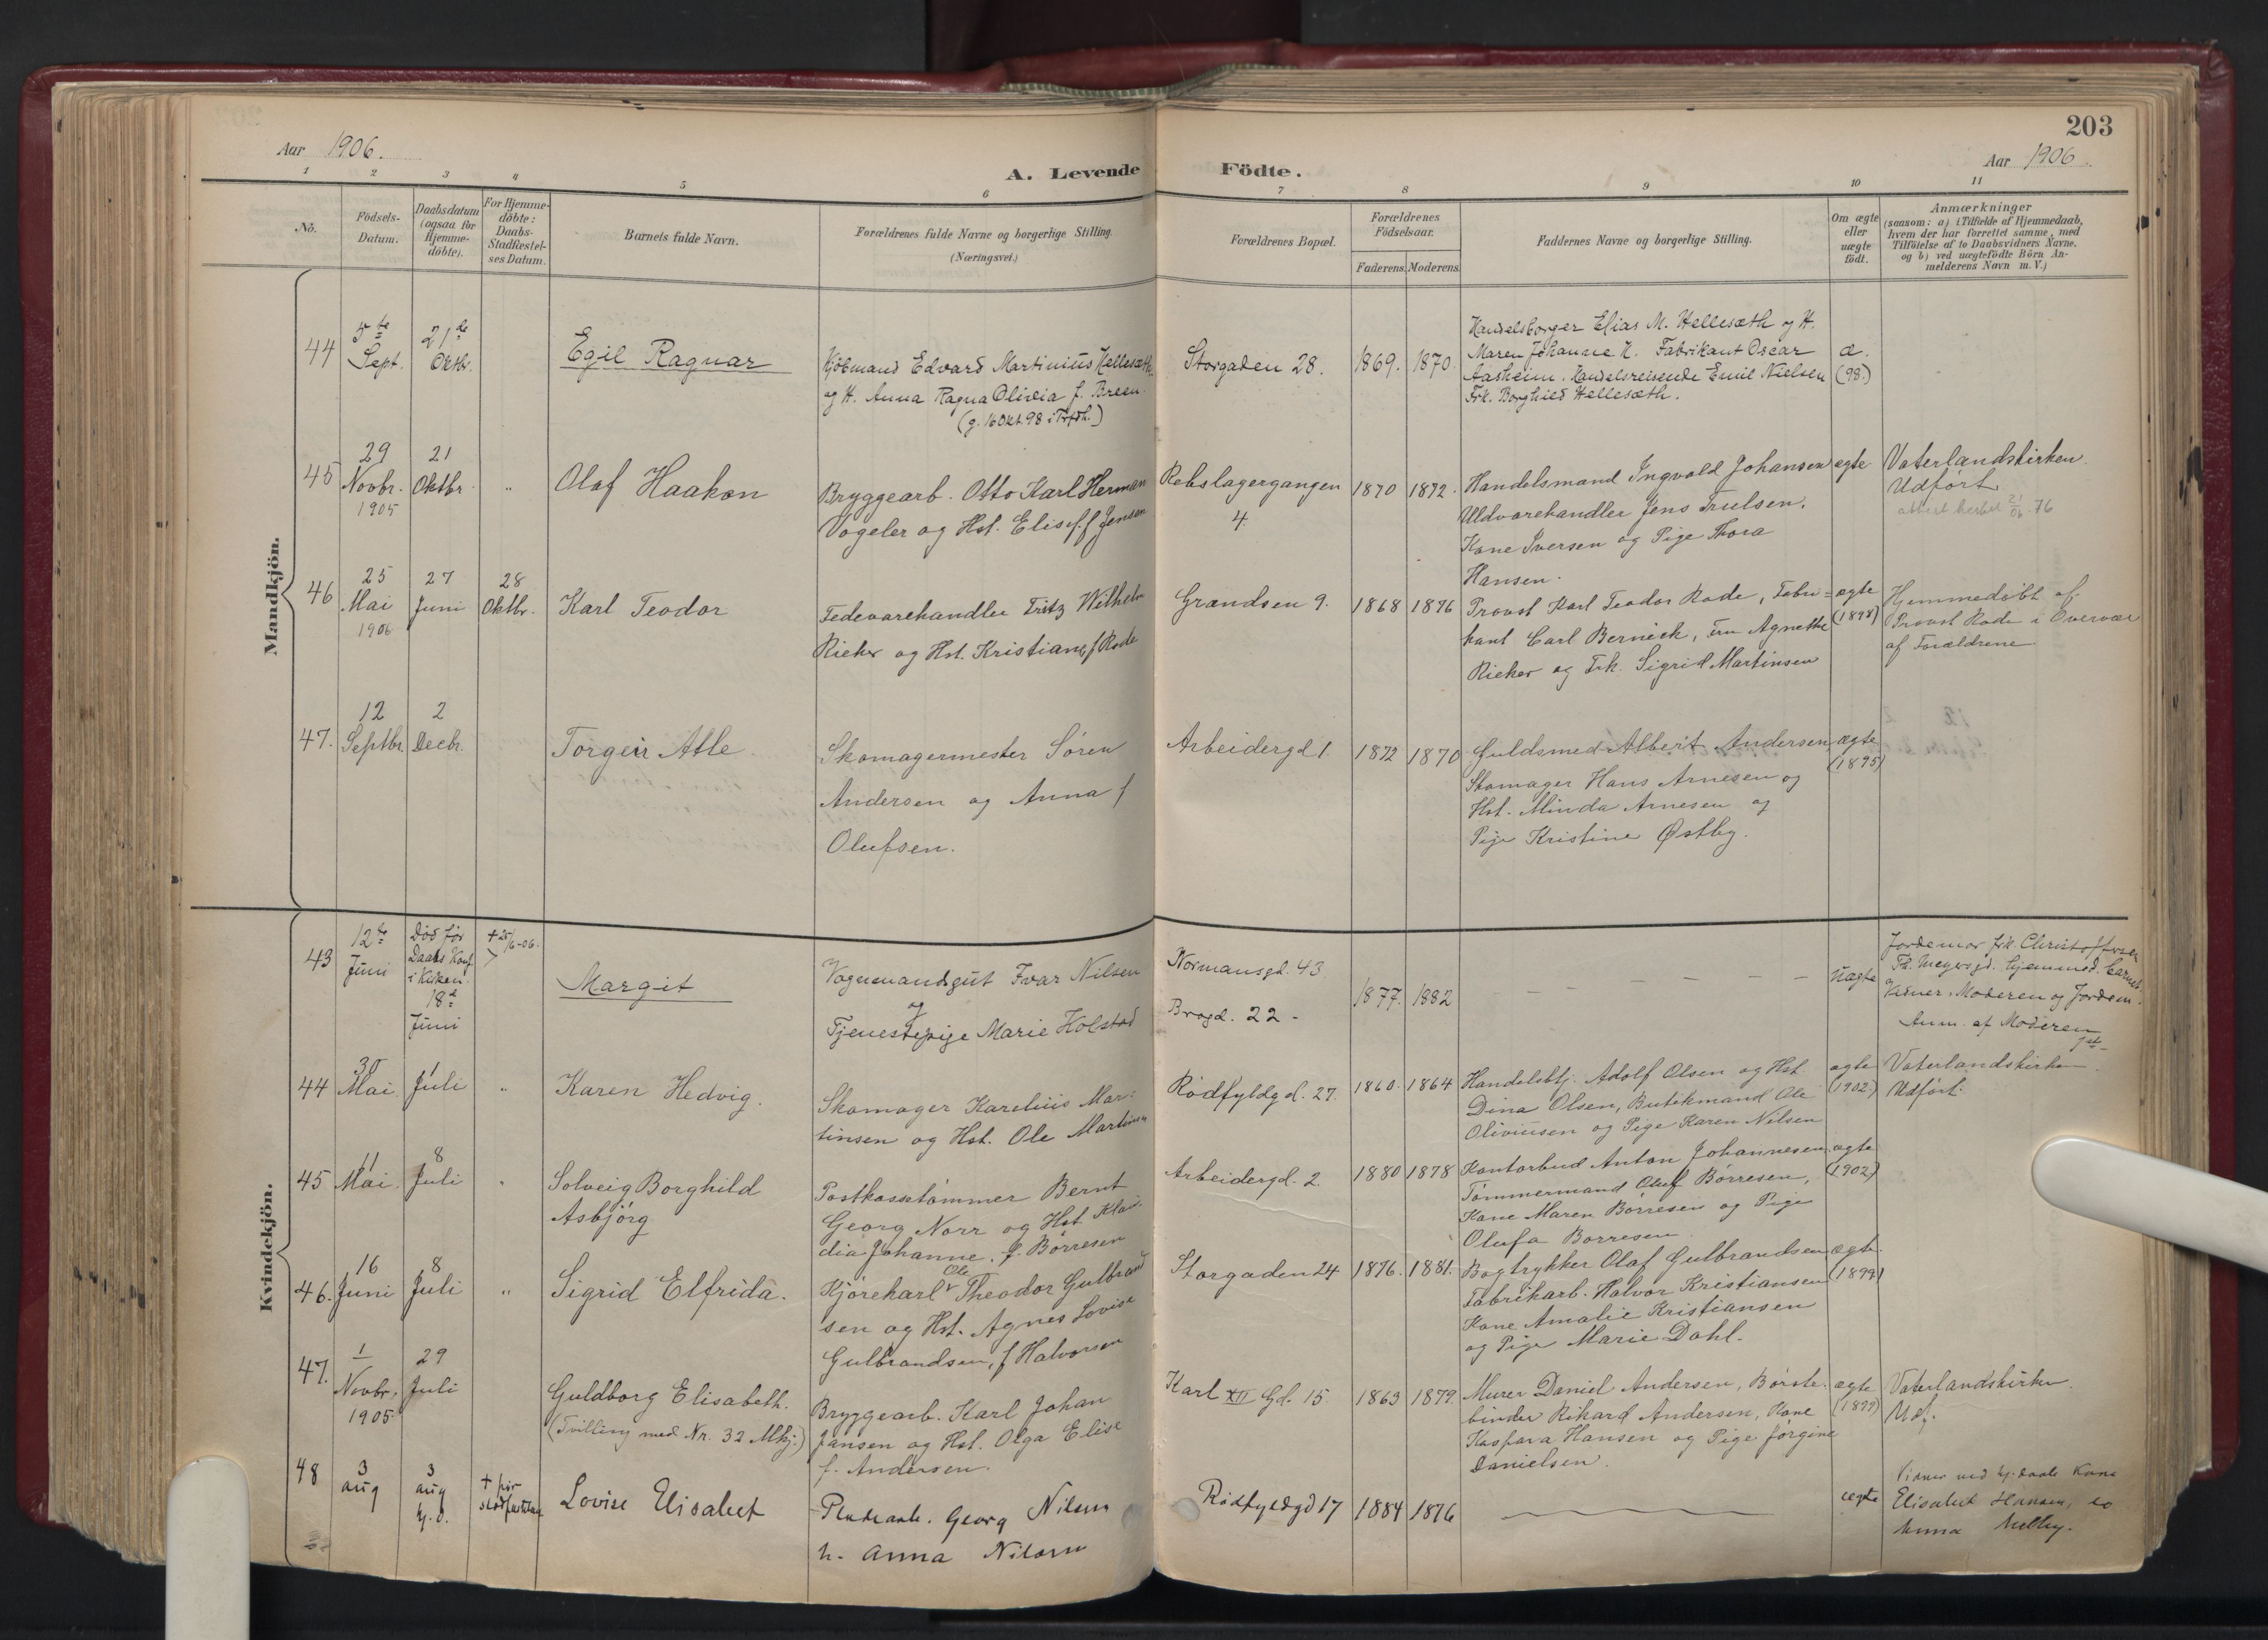 203
Aar 1906.
Aar 1906.
A. Levende Födte.
1 2 3 4 5 6 7 8 9 10 11
No.
Födsels-
Datum.
Daabsdatum
(ogsaa for
Hjemme-
döbte).
For Hjemme-
döbte:
Daabs-
Stadfæstel-
ses Datum.
Barnets fulde Navn.
Forældrenes fulde Navne og borgerlige Stilling.
(Næringsvei.)
Forældrenes Bopæl.
Forældrenes
Födselsaar.
Faderens. Moderens.
Faddernes Navne og borgerlige Stilling.
Om ægte
eller
uægte
födt.
Anmærkninger
(saasom: a) i Tilfælde af Hjemmedaab,
hvem der har forrettet samme, med
Tilföielse af to Daabsvidners Navne.
og b) ved uægtefödte Börn An-
melderens Navn m. V.)
Mandkjön.
44
5te
Sept.
21de
Oktbr.
Egil Ragnar
Kjöbmand Edvard Martinius Hellesæth
og H. Anna Ragna Olivia f. Breen.
(g. 16 Okt. 98 i Trfdh.)
Storgaden 28.
1869. 1870
Handelsborger Elias M. Hellesæth og H.
Maren Johanne H. Fabrikant Oscar
Aasheim. Handelsreisende Emil Nielsen
Frk. Borghild Hellesæth.
æ.
(98.)
45
29
Novbr.
1905
21
Oktbr.
"
Olaf Haakon
Bryggearb. Otto Karl Herman
Vogeler og Hst. Elise f. Jensen
Rebslagergangen
4.
1870 1872.
Handelsmand Ingvald Johansen
Uldvarehandler Jens Trulsen.
Kone Iversen og Pige Thora
Hansen.
ægte
Vaterlandskirken.
Udført
21/06.76
46
25
Mai
1906
27
Juni
28
Oktbr.
Karl Teodor
Fedevarehandler Fritz Wilhelm
Rieker og Hst. Kristiane f Rode
Grændsen 9.
1868 1876
Provst Karl Teodor Rode, Fabri=
kant Carl Bernick, Fru Agnethe
Rieker og Frk. Sigrid Martinsen
ægte
(1898)
Hjemmedøbt af
Provst Rode i Overvær
af Forældrene
47.
12
Septbr.
2
Decbr.
Torgeir Atle
Skomagermester Sören
Andersen og Anna f
Olufsen.
Arbeidergd 1.
1872 1870
Guldsmed Albert Andersen
Skomager Hans Arnesen og
Hst. Minda Arnesen og
Pige Kristine Østby.
ægte
(1895)
Kvindekjön.
43
12te
Juni
Död för
Daabs Konf
i Kirken.
18de
Juni
+ 25/6-06.
Margit
Vognmandsgut Ivar Nilsen
og
Tjenestepige Marie Holstad
Normansgd. 43.
Brogd. 22 -
1877. 1882
- - - - - -
Uægte
Jordemor frk. Christoffersen
Th. Meyersgd. hjemmed. barnet.
Vidner: Moderen og Jordem.
Anm. af Moderen
44
30
Mai
1
Juli
"
Karen Hedvig.
Skomager Karelius Mar:
tinsen og Hst. Ole Martinsen
Rødfyldgd. 27.
1860. 1864
Handelsbtj. Adolf Olsen og Hst
Dina Olsen, Butikmand Ole
Oliviusen og Pige Karen Nilsen
ægte
(1902.)
Vaterlandskirken.
Udført.
45
11
Mai
8
Juli
"
Solveig Borghild
Asbjörg
Postkassetömmer Bernt
Georg Norr og Hst Klau-
dia Johanne. f. Börresen
Arbeidergd. 2.
1880 1878
Kontorbud Anton Johannesen
Tömmermand Oluf Börresen,
Kone Maren Börresen og Pige
Olufa Borresen
ægte
(1902)
46.
16
Juni
8
Juli
"
Sigrid Elfrida.
Kjörekarl Ole Theodor Gulbrand
sen og Hst. Agnes Lovise
Gulbrandsen, f Halvorsen
Storgaden 24
1876. 1881.
Bogtrykker Olaf Gulbrandsen
Fabrikarb. Halvor Kristiansen
Kone Amalie Kristiansen
og Pige Marie Dahl.
ægte.
(1899)
47.
1
Novbr.
1905
29
Juli
Guldborg Elisabeth.
(Tvilling med Nr. 32 Mkj.)
Bryggearb. Karl Johan
Jansen og Hst. Olga Elise
f. Andersen.
Karl XII Gd. 15.
1863 1879.
Murer Daniel Andersen, Börste.
binder Rikard Andersen, Kone
Kaspara Hansen og Pige Jörgine
Danielsen.
ægte
(1899)
Vaterlandskirken.
Udf.
48
3
aug
3
aug
hj. d.
+ før
stadfæstelse
Lovise Elisabet
Georg Nilsen
h. Anna Nilsen
Rödfyldgd 17
1884 1876
ægte
Vidner ved hj. daab Kone
Elisabet Hansen, do
Anna Melby.